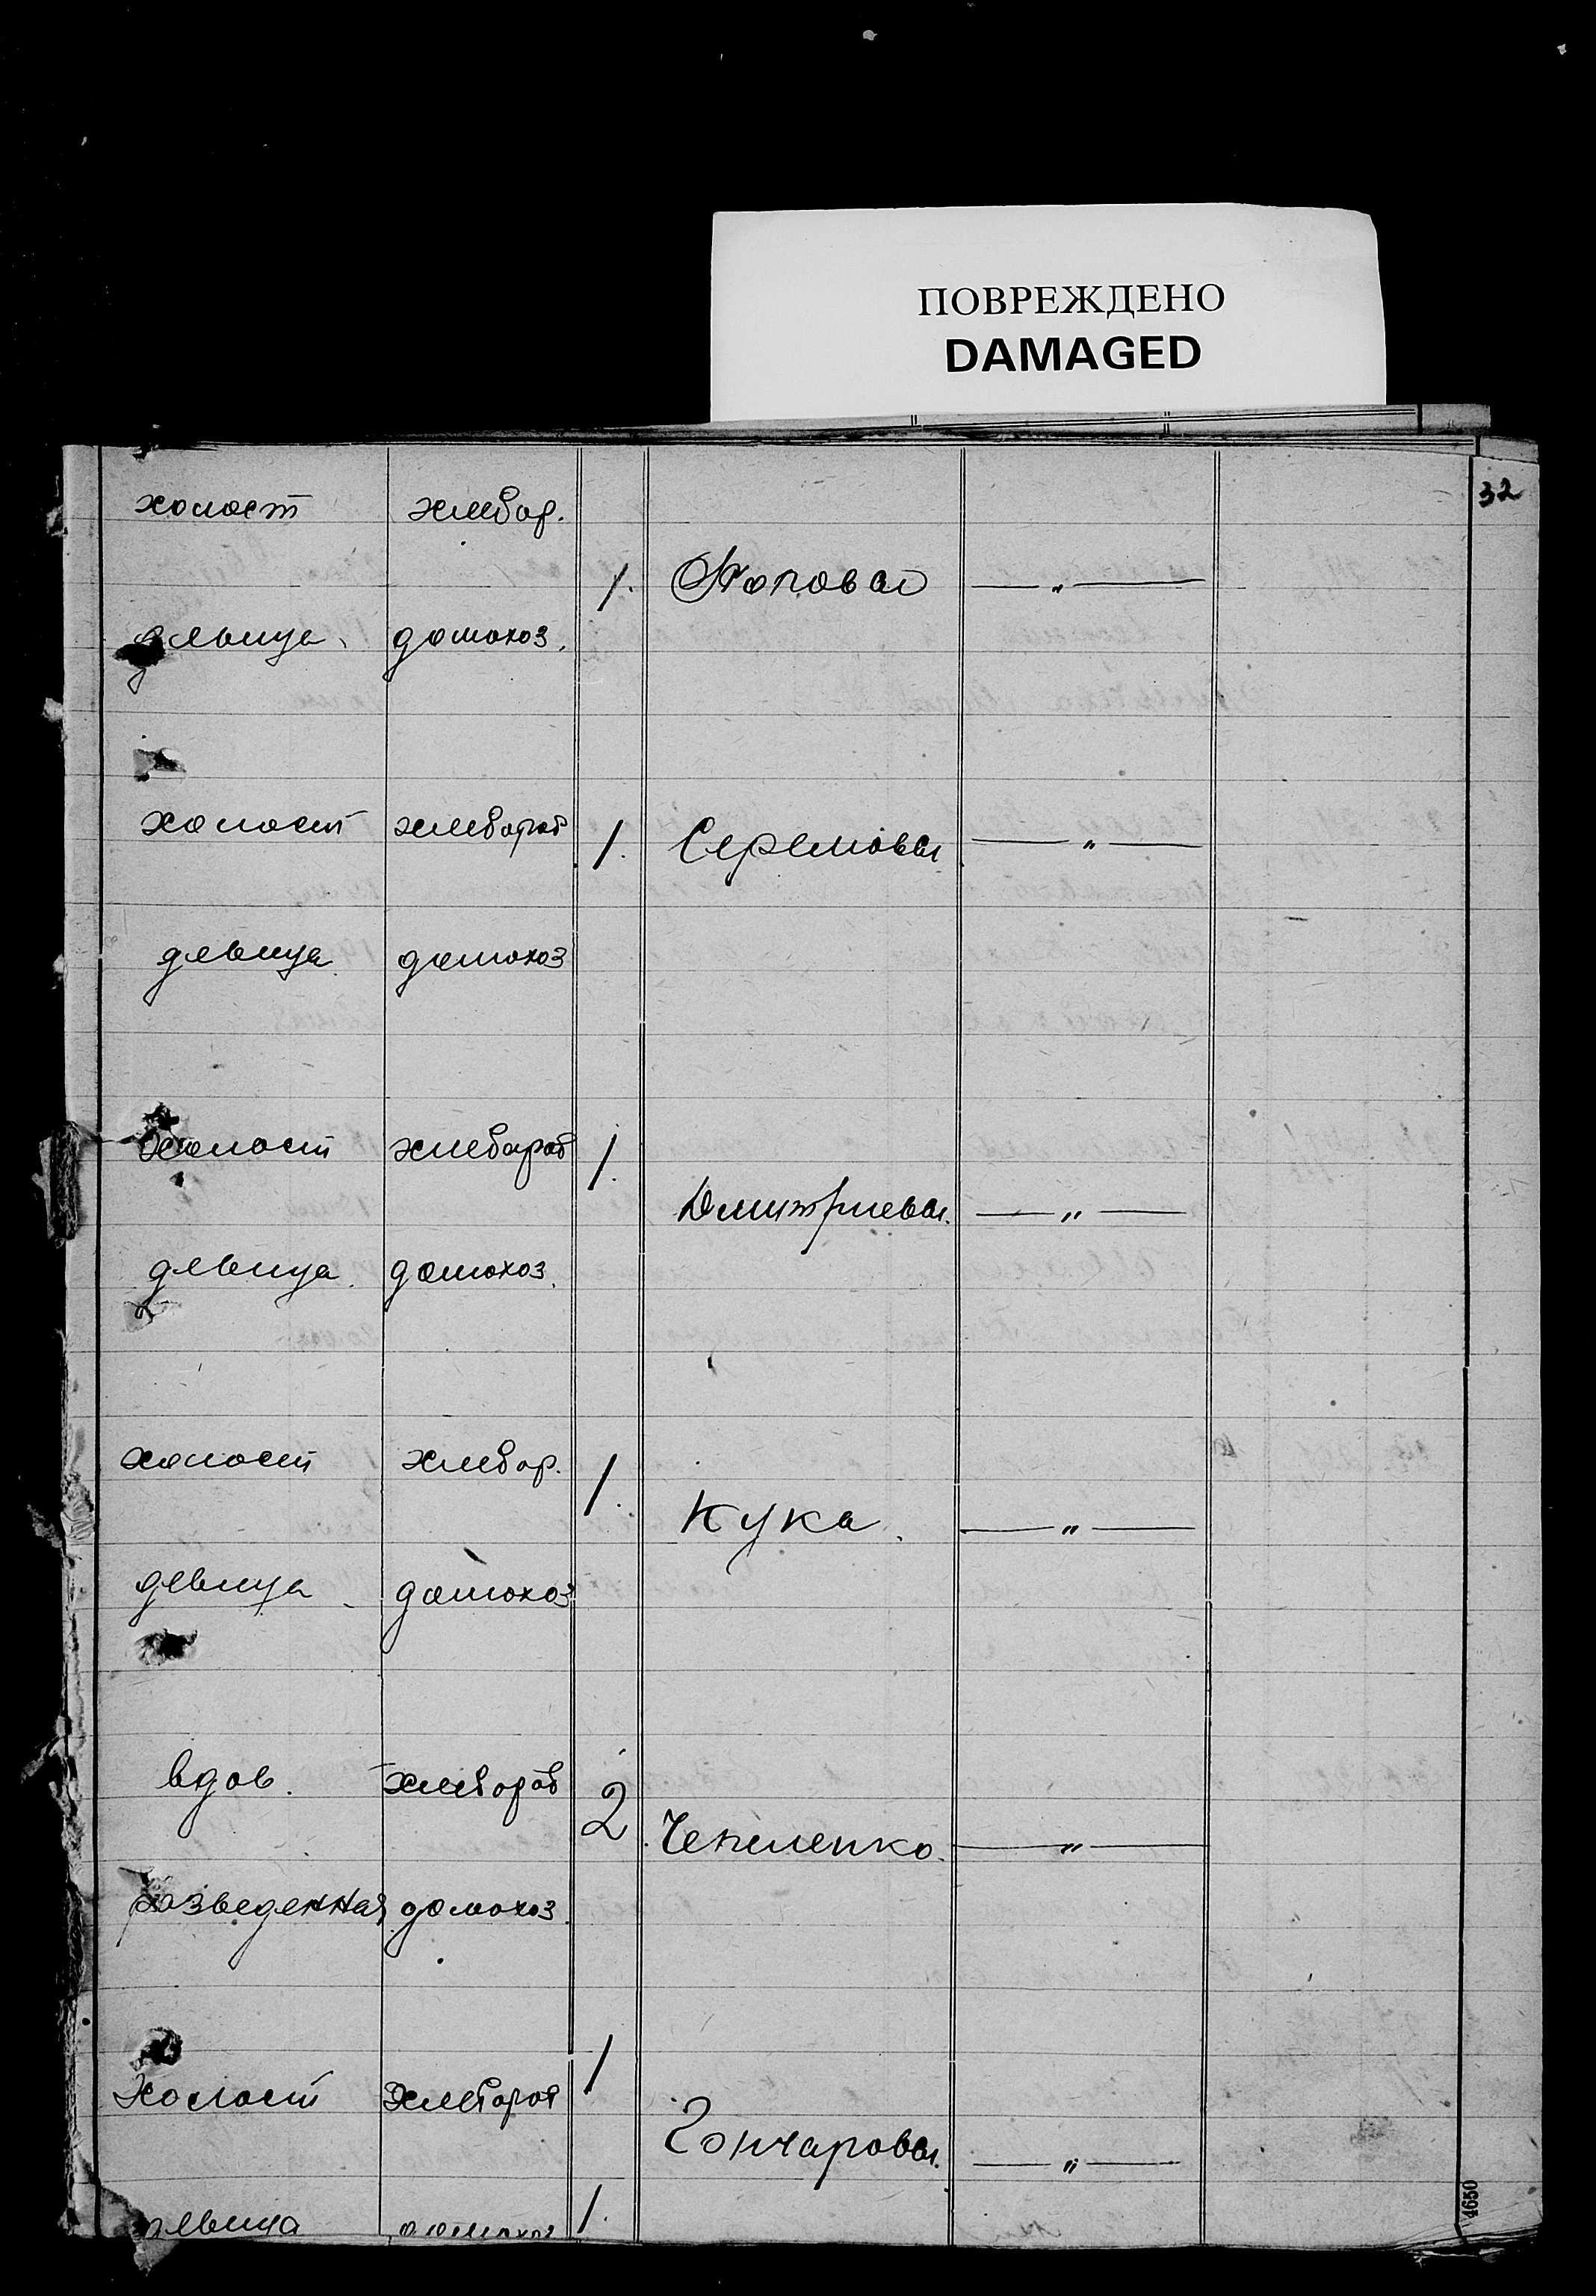 ПОВРЕЖДЕНО
DAMAGED
32
холост хлебор.
1. Попова — „ —
девица домохоз.
холост хлебороб 1. — „ —
девица домохоз
холост хлебороб 1.
Дмитриева. — „ —
девица. домохоз.
холост хлебор. 1.
Кука. — „ —
девица домохоз
вдов. хлебороб 2.
— „ —
разведенная домохоз
Холост Хлебороб 1
Гончарова. — „ —
девица домохоз 1.
4650